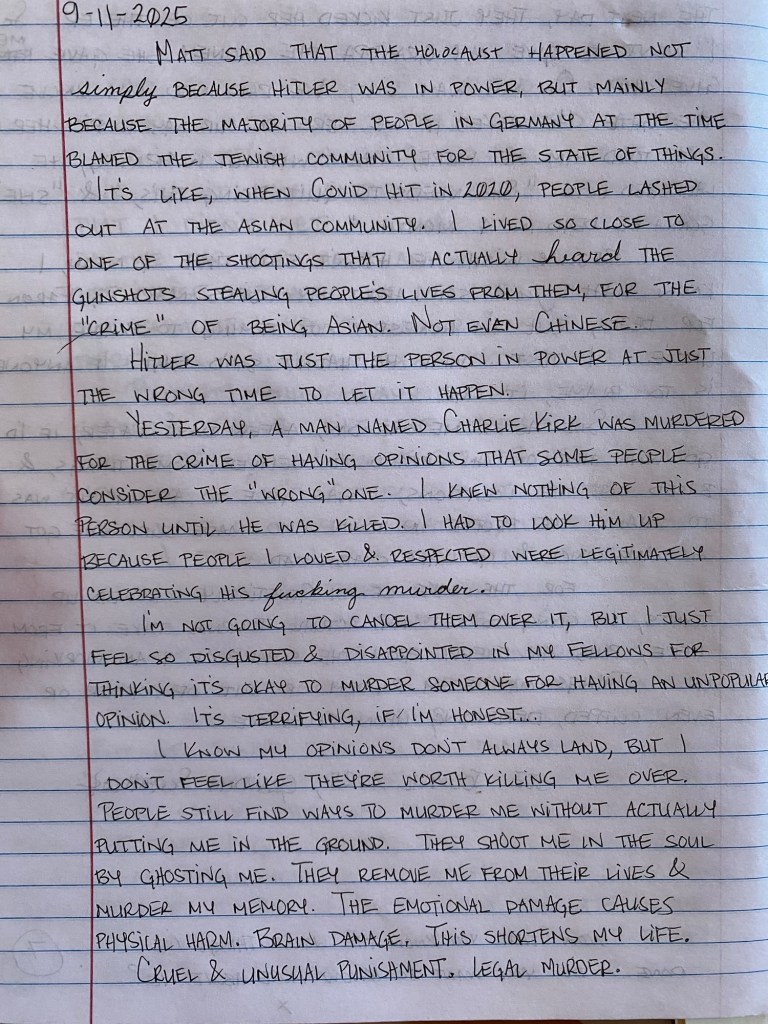 9-11-2025
MATT SAID THAT THE HOLOCAUST HAPPENED NOT
simply BECAUSE HITLER WAS IN POWER, BUT MAINLY
BECAUSE THE MAJORITY OF PEOPLE IN GERMANY AT THE TIME
BLAMED THE JEWISH COMMUNITY FOR THE STATE OF THINGS.
IT'S LIKE, WHEN COVID HIT IN 2020, PEOPLE LASHED
OUT AT THE ASIAN COMMUNITY. I LIVED SO CLOSE TO
ONE OF THE SHOOTINGS THAT I ACTUALLY heard THE
GUNSHOTS STEALING PEOPLE'S LIVES FROM THEM, FOR THE
"CRIME" OF BEING ASIAN. NOT EVEN CHINESE.
HITLER WAS JUST THE PERSON IN POWER AT JUST
THE WRONG TIME TO LET IT HAPPEN.
YESTERDAY, A MAN NAMED CHARLIE KIRK WAS MURDERED
FOR THE CRIME OF HAVING OPINIONS THAT SOME PEOPLE
CONSIDER THE "WRONG" ONE. I KNEW NOTHING OF THIS
PERSON UNTIL HE WAS KILLED. I HAD TO LOOK HIM UP
BECAUSE PEOPLE I LOVED & RESPECTED WERE LEGITIMATELY
CELEBRATING HIS fucking murder.
I'M NOT GOING TO CANCEL THEM OVER IT, BUT I JUST
FEEL SO DISGUSTED & DISAPPOINTED IN MY FELLOWS FOR
THINKING IT'S OKAY TO MURDER SOMEONE FOR HAVING AN UNPOPULAR
OPINION. IT'S TERRIFYING, IF I'M HONEST...
I KNOW MY OPINIONS DON'T ALWAYS LAND, BUT I
DON'T FEEL LIKE THEY'RE WORTH KILLING ME OVER.
PEOPLE STILL FIND WAYS TO MURDER ME WITHOUT ACTUALLY
PUTTING ME IN THE GROUND. THEY SHOOT ME IN THE SOUL
BY GHOSTING ME. THEY REMOVE ME FROM THEIR LIVES &
MURDER MY MEMORY. THE EMOTIONAL DAMAGE CAUSES
PHYSICAL HARM. BRAIN DAMAGE. THIS SHORTENS MY LIFE.
CRUEL & UNUSUAL PUNISHMENT. LEGAL MURDER.